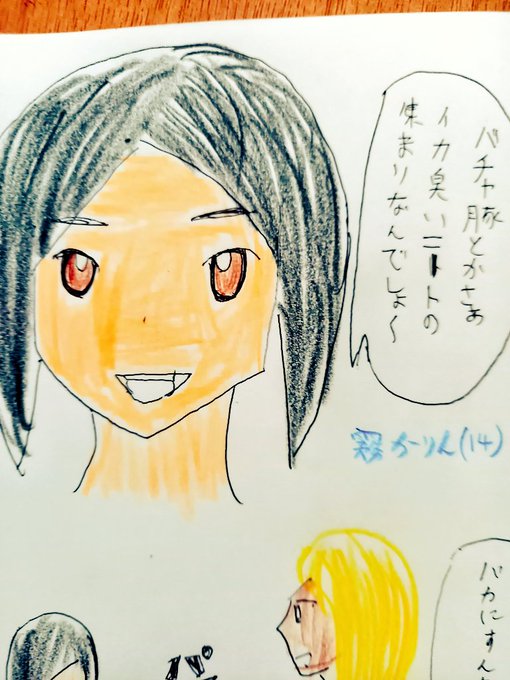 バチャ豚とかさぁ
イカ臭いニートの
集まりなんでしょ〜
かりん(14)
バカにすん
パ